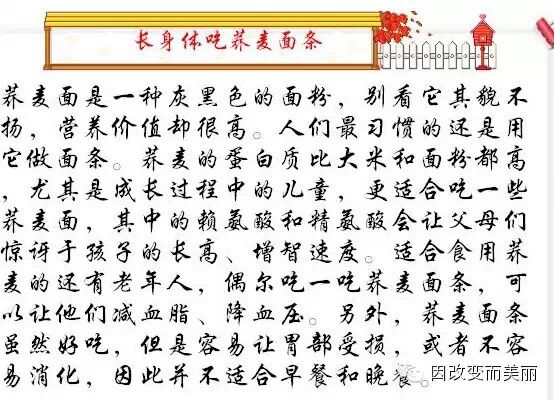 长身体吃荞麦面条
荞麦面是一种灰黑色的面粉，别看它其貌不
扬，营养价值却很高。人们最习惯的还是用
它做面条。荞麦的蛋白质比大米和面粉都高
，尤其是成长过程中的儿童，更适合吃一些
荞麦面，其中的赖氨酸和精氨酸会让父母们
惊讶于孩子的长高、增智速度。适合食用荞
麦的还有老年人，偶尔吃一吃荞麦面条，可
以让他们减血脂、降血压。另外，荞麦面条
虽然好吃，但是容易让胃部受损，或者不容
易消化，因此并不适合早餐和晚餐。
因改变而美丽